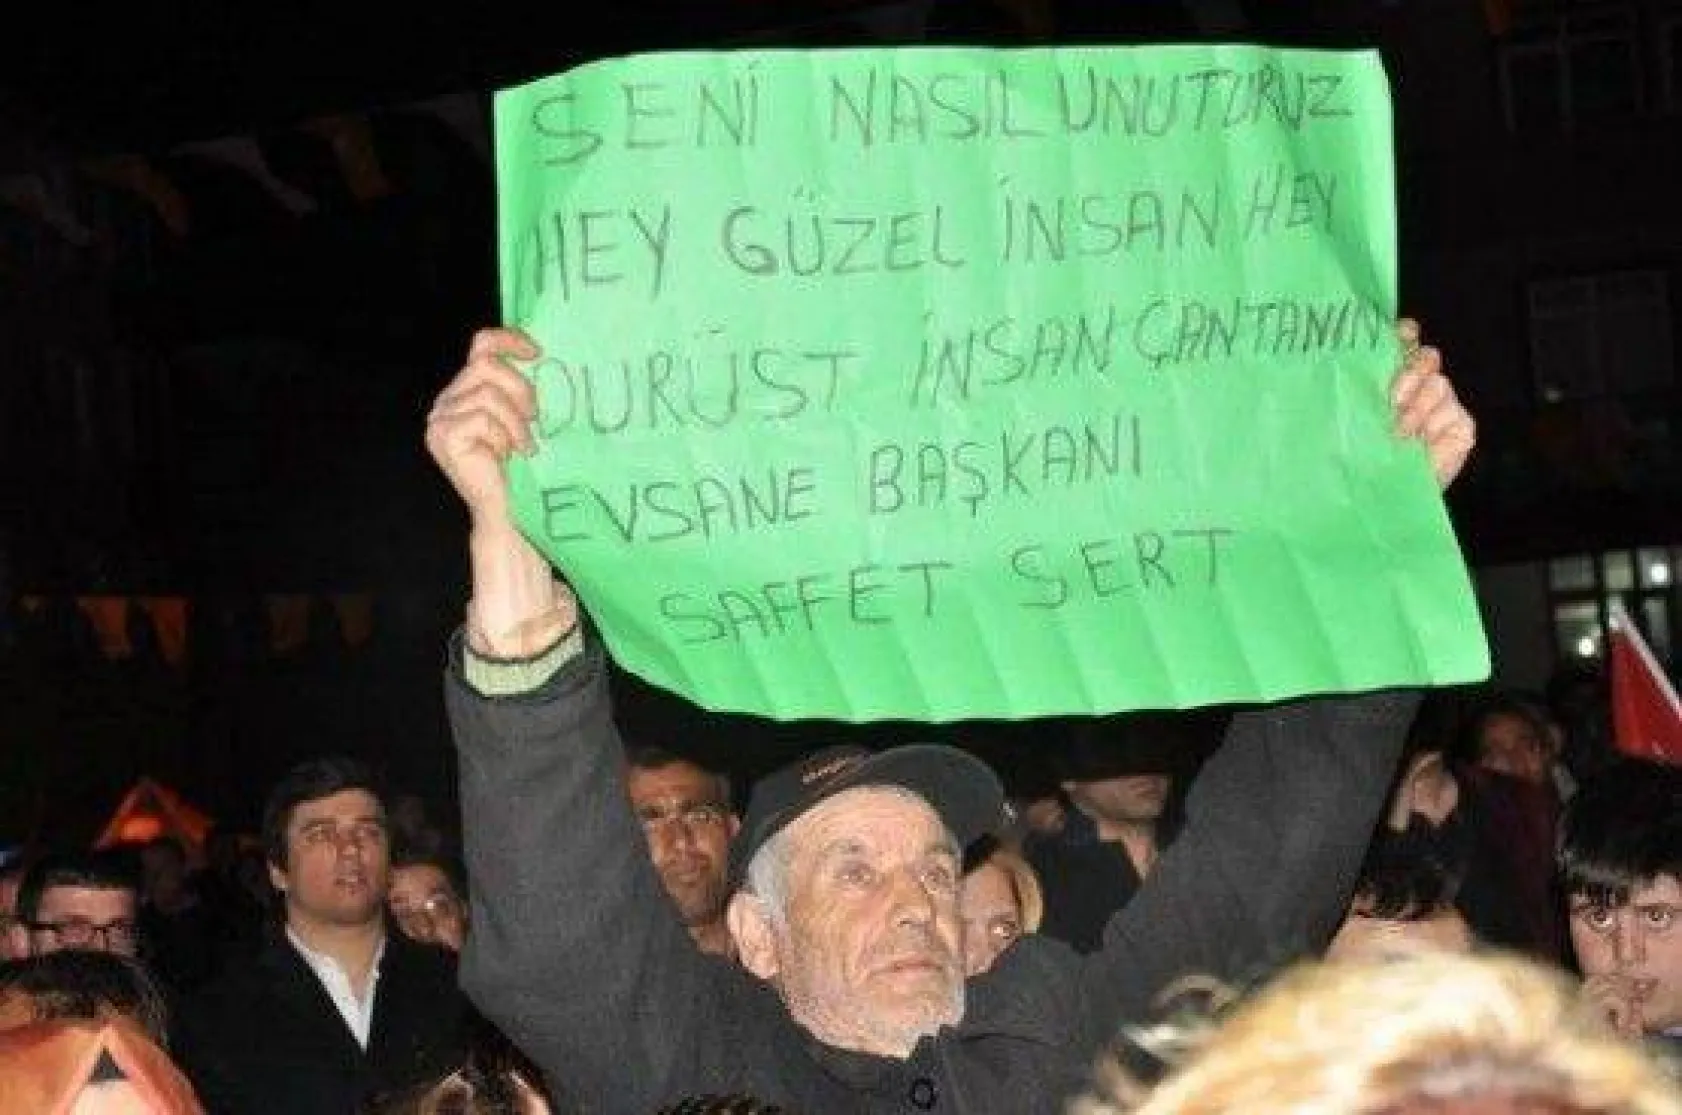 SENİ NASIL UNUTURUZ
HEY GÜZEL İNSAN HEY
DURÜST İNSAN ÇANTANIN
EVSANE BAŞKANI
SAFFET SERT